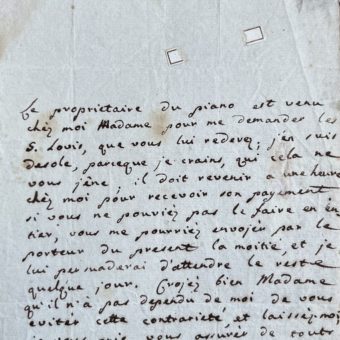 Le proprietaire du piano est venu
chez moi Madame pour me demander les
5. Louis, que vous lui redevez; j'en suis
desolé, parceque je crains, qui cela ne
vous jêne; il doit revenir a une heure
chez moi pour recevoir son payement
si vous ne pouviez pas le faire en en
tier, vous me pourriez envojer par le
porteur du present la moitié, et je
lui persuaderai d'attendre le reste
quelque jour. Crojez bien Madame
qu'il n'à pas dependu de moi de vous
eviter cette contrarieté et laissez-moi
vous assurer de touts